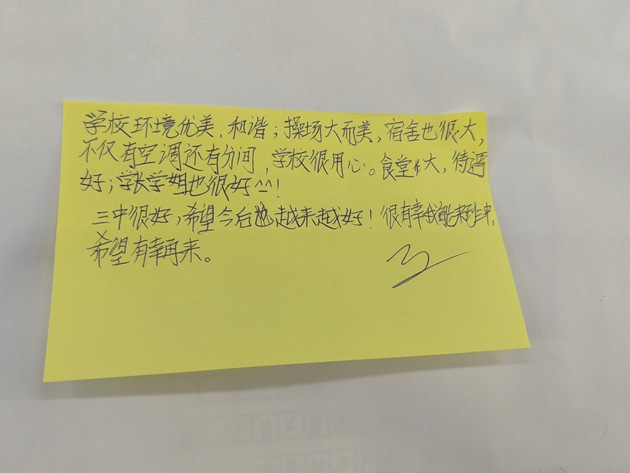 学校环境优美,和谐;操场大而美,宿舍也很大,
不仅有空调还有分间,学校很用心。食堂大,待遇
好;学长学姐也很好^^!
三中很好,希望今后也越来越好!很有幸我能来到
希望有幸再来。